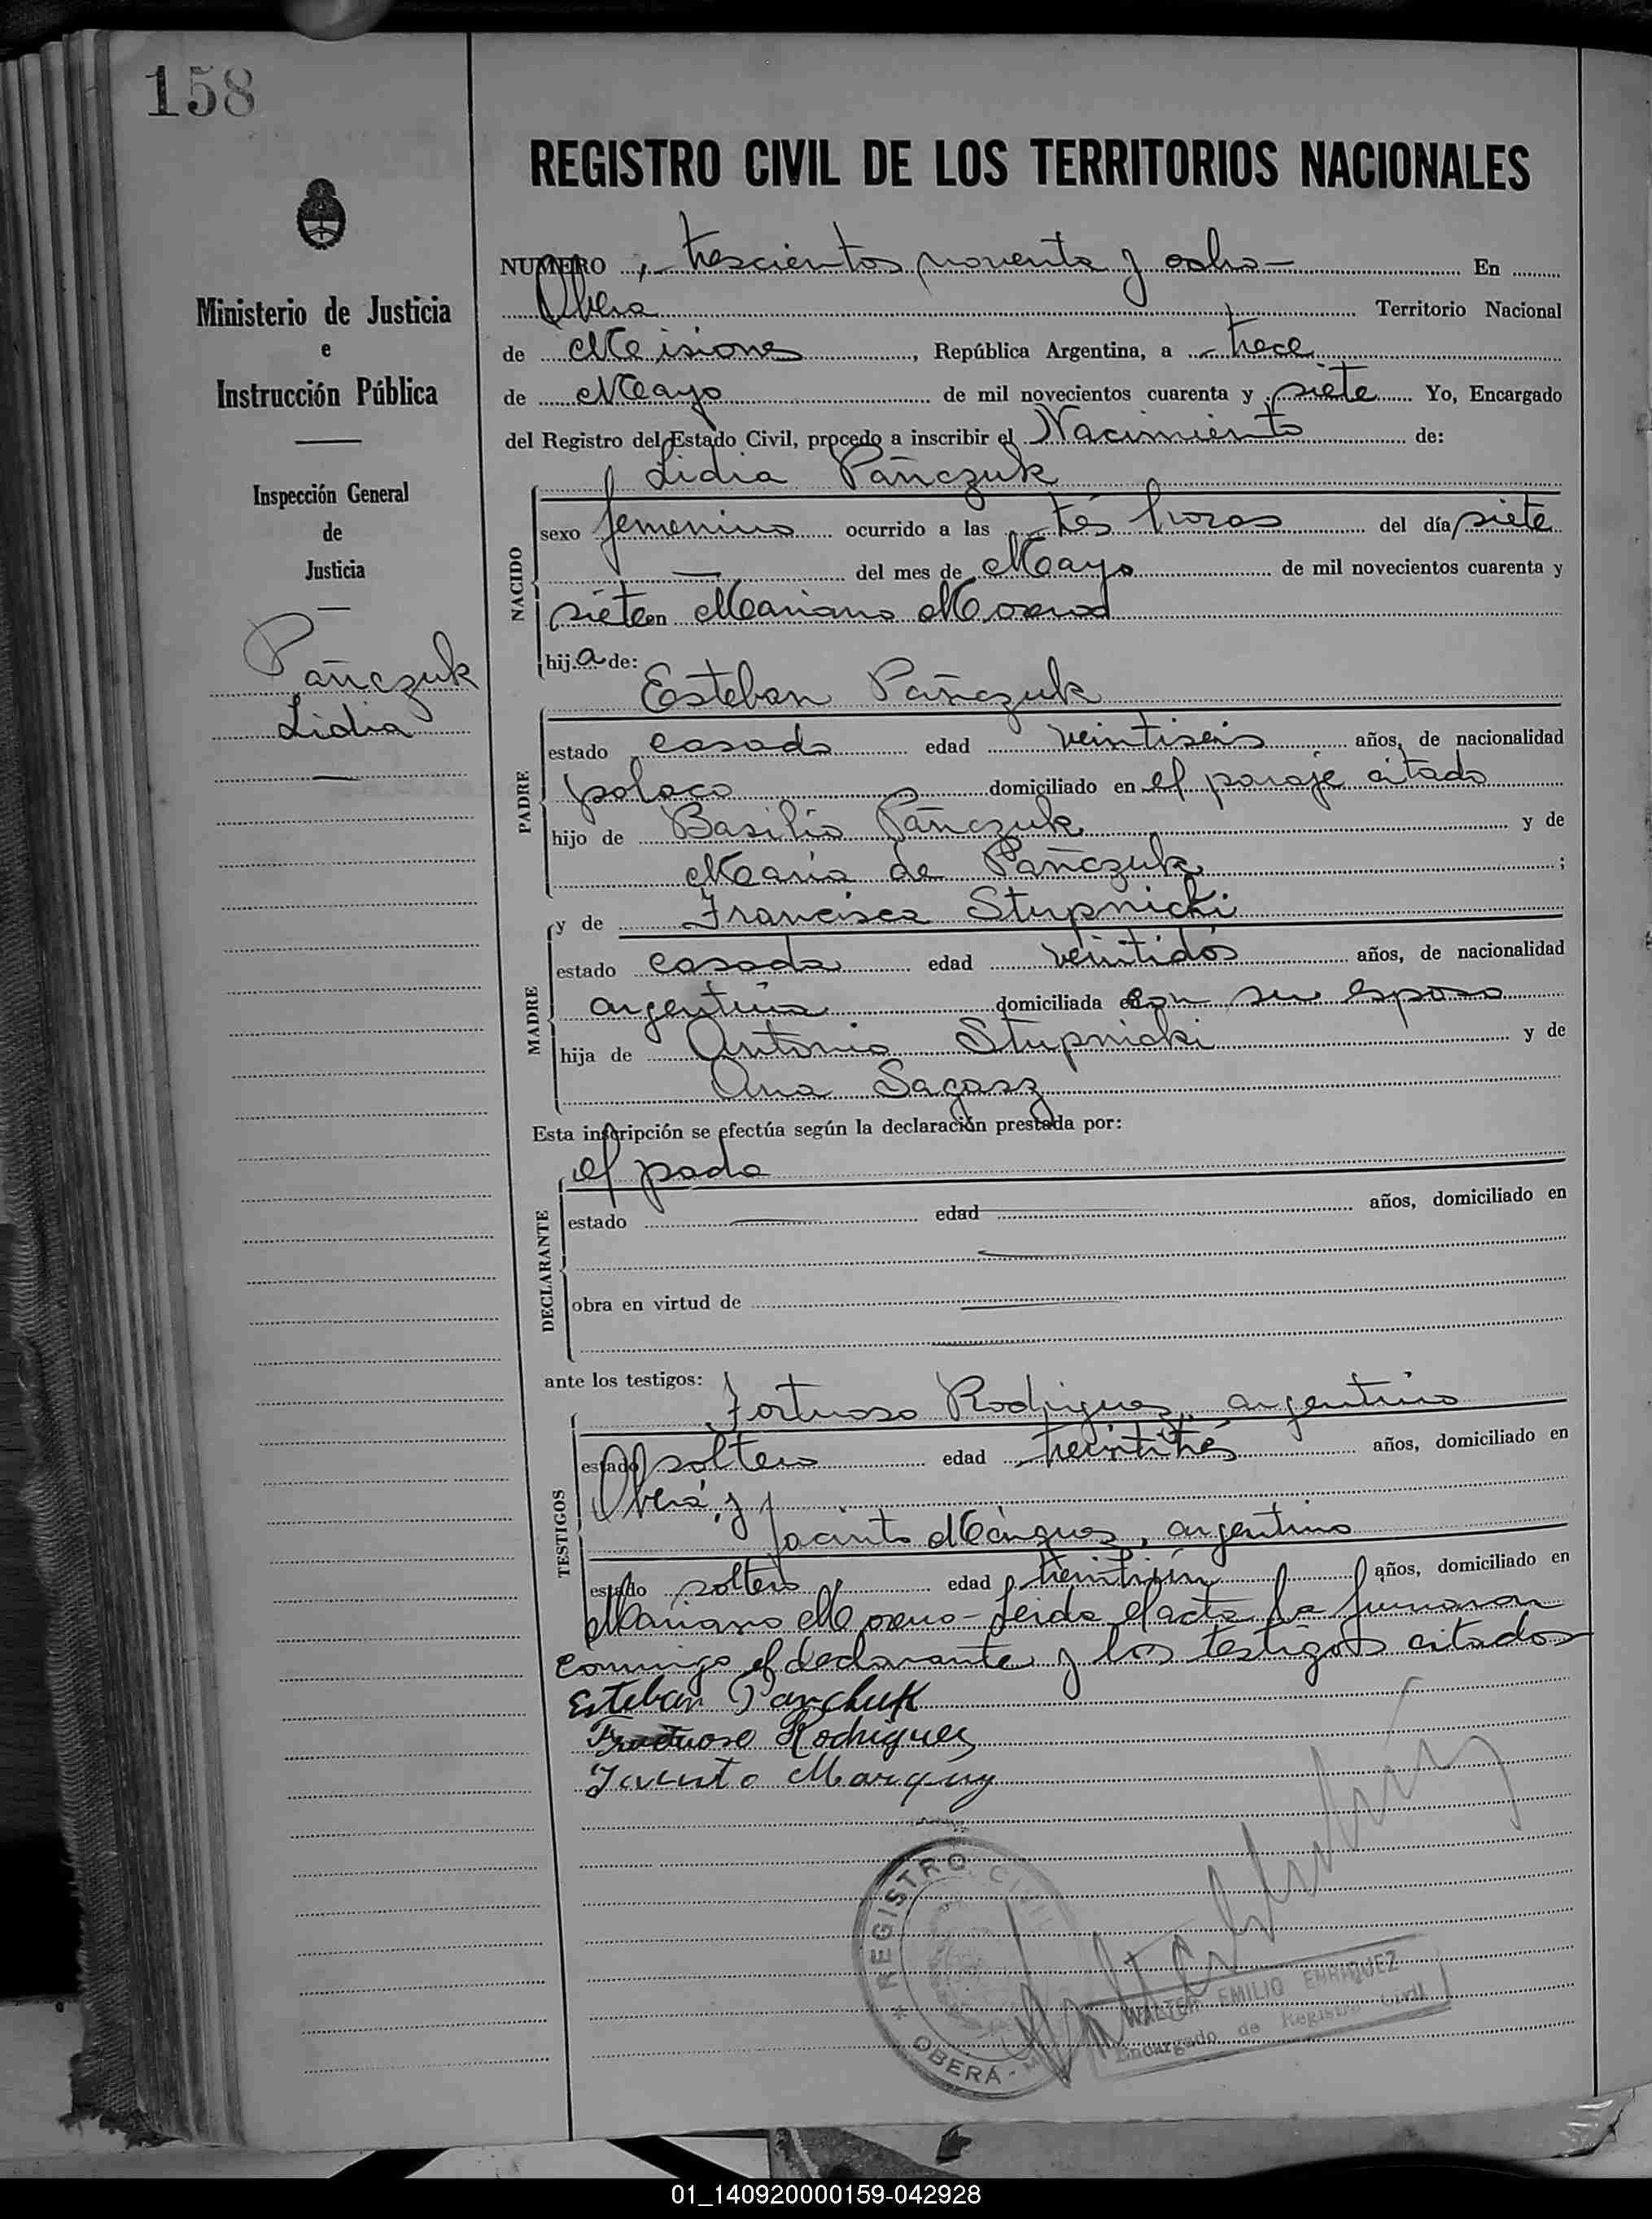 158
REGISTRO CIVIL DE LOS TERRITORIOS NACIONALES
NUMERO , trescientos noventa y ocho — En
Oberá Territorio Nacional
de Misiones, República Argentina, a trece
de Mayo de mil novecientos cuarenta y siete Yo, Encargado
del Registro del Estado Civil, procedo a inscribir el Nacimiento de:
Ministerio de Justicia
e
Instrucción Pública
Inspección General
de
Justicia
Pañczuk
Lidia
NACIDO
Lidia Pañczuk
sexo femenino ocurrido a las trés horas del día siete
— del mes de Mayo de mil novecientos cuarenta y
siete en Mariano Moreno
hija de:
PADRE
Esteban Pañczuk
estado casado edad veintiseis años, de nacionalidad
polaco domiciliado en el paraje citado
hijo de Basilio Pañczuk y de
María de Pañczuk ;
MADRE
y de Francisca Stupnicki
estado casada edad veintidós años, de nacionalidad
argentina domiciliada en con su esposo
hija de Antonio Stupnicki y de
Ana Sagasz
Esta inscripción se efectúa según la declaración prestada por:
DECLARANTE
el padre
estado — edad — años, domiciliado en
—
obra en virtud de —
ante los testigos:
TESTIGOS
Fortuoso Rodriguez, argentino
estado soltero edad treintitrés años, domiciliado en
Oberá y
Jacinto Márquez, argentino
estado soltero edad treintiún años, domiciliado en
Mariano Moreno - Leida el acta la firmaron
conmigo el declarante y los testigos citados
Esteban Panchuk
Fructuoso Rodrigues
Jacinto Marquez
REGISTRO CIVIL
OBERÁ -
WALTER EMILIO ENRIQUEZ
Encargado de Registro Civil
01_140920000159-042928